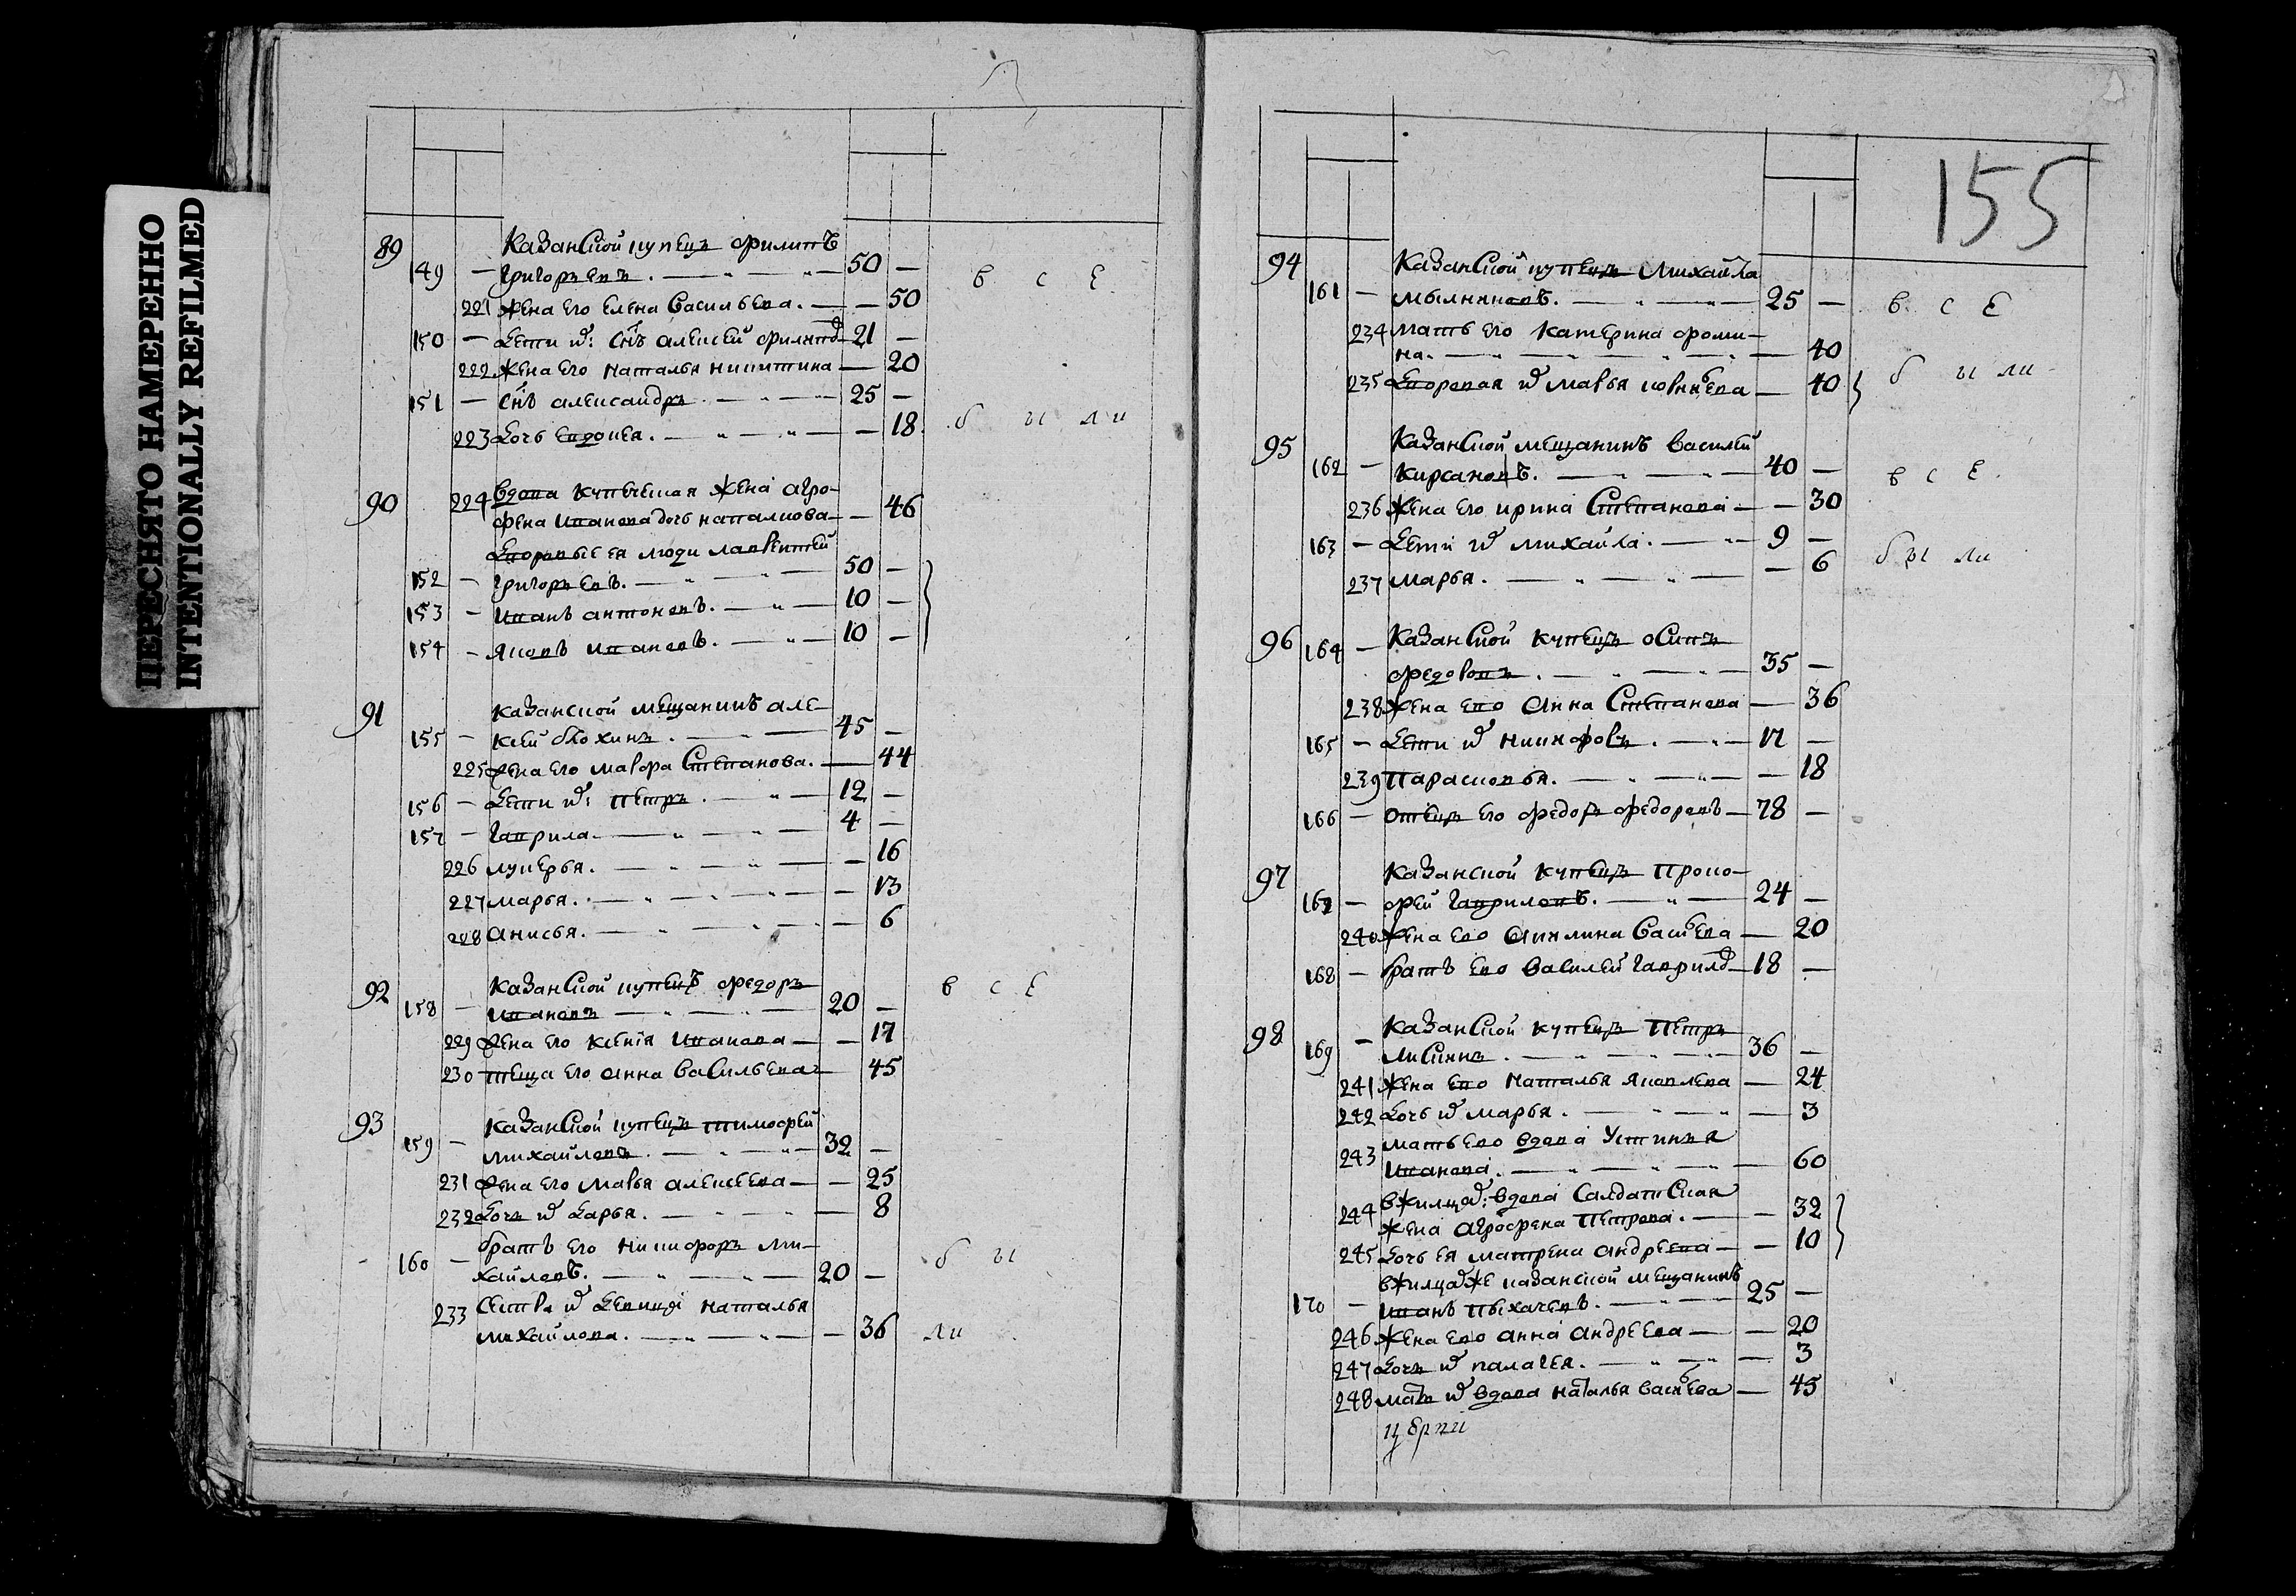 ПЕРЕСНЯТО НАМЕРЕННО
INTENTIONALLY REFILMED
89 Казанской купецъ Филипъ
149 — Григорьевъ. — 50 — в с Е
221 Жена его Елена Васильева. — 50
150 — Дети их: снъ Алексей Филипов 21 —
222 Жена его Наталья Никитина — 20
151 — снъ Александръ — 25 —
223 Дочь Евдокея. — 18 б ы ли
90 224 Вдова купеческая жена Агро-
фена Иванова дочь — 46
Дворовые ея люди Лаврентей
152 — Григорьевъ. — 50 —
153 — Иванъ Антоновъ. — 10 —
154 — Яковъ Ивановъ. — 10 —
91 Казанской мещанинъ Але-
155 — ксей Блохинъ. — 45 —
225 Жена его Мавра Степанова. — 44
156 — Дети их: Петръ. — 12 —
157 — Гаврила — 4 —
226 Лукерья. — 16
227 Марья. — 13
228 Анисья. — 6
92 Казанской купецъ Федоръ
158 — Ивановъ — 20 — в с Е
229 Жена его Ксения Иванова — 17
230 Теща его Анна Васильева 45
93 Казанской купецъ Тимофей
159 — Михайловъ. — 32 —
231 Жена его Мавья Алексеева — 25
232 Дочь их Дарья. — 8
братъ его Никифоръ Ми-
160 — хайловъ. — 20 — б ы
233 Сестра их девица Наталья
Михайлова. — 36 ли
155
94 Казанской купецъ Михайла
161 — Мыльниковъ. — 25 — в с Е
234 Мать его Катерина Фоми-
на. — 40
235 Дворовая их Мавья — 40 б ы ли
95 Казанской мещанинъ Василей
162 — Кирсановъ. — 40 — в с Е
236 Жена его Ирина Степанова — 30
163 — Дети их Михайла. — 9 —
237 Марья. — 6 бы ли
96 164 — Казанской купецъ Осипъ
Федоровъ. — 35 —
238 Жена ево Анна Степанова — 36
165 — Дети их Никифоръ. — 17 —
239 Парасковья. — 18
166 — Отецъ его Федоръ Федоровъ — 78 —
97 Казанской купецъ Проко-
167 — фей Гавриловъ. — 24 —
240 Жена ево Акилина Васильева — 20
168 — братъ ево Василей Гаврилов — 18 —
98 Казанской купецъ Петръ
169 — Лисинъ. — 36 —
241 Жена ево Наталья Яковлева — 24
242 Дочь их Марья. — 3
243 Мать ево вдова Устинья
Иванова. — 60
244 в жилцах: вдова салдатская
жена Агрофена Петрова. — 32
245 Дочь ея Матрена Андреева — 10
в жилцах же казанской мещанинъ
170 — Иванъ Пыхачевъ. — 25 —
246 Жена ево Анна Андреева — 20
247 Дочь их Палагея. — 3
248 Мать их вдова Наталья Васильева — 45